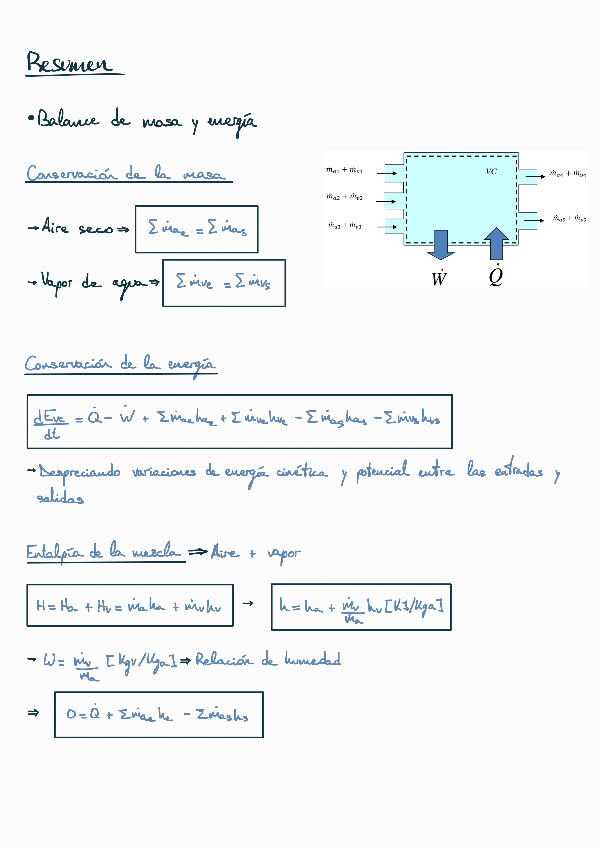 Resumen
•Balance de masa y energía
Conservación de la masa
→Aire seco⇒ Σṁae = Σṁas
→Vapor de agua⇒ Σṁve = Σṁvs
ṁa1 + ṁv1
ṁa2 + ṁv2
ṁa3 + ṁv3
VC
ṁa4 + ṁv4
ṁa5 + ṁv5
Ẇ
Q̇
Conservación de la energía
dEvc/dt = Q̇ - Ẇ + Σṁae hae + Σṁve hve - Σṁas has - Σṁvs hvs
→Despreciando variaciones de energía cinética y potencial entre las entradas y
salidas
Entalpía de la mezcla ⇒ Aire + vapor
H = Ha + Hv = ṁa ha + ṁv hv → h = ha + ṁv/ṁa hv [KJ/Kga]
→ W = ṁv/ṁa [Kgv/Kga] ⇒ Relación de humedad
⇒ 0 = Q̇ + Σṁae he - Σṁas hs